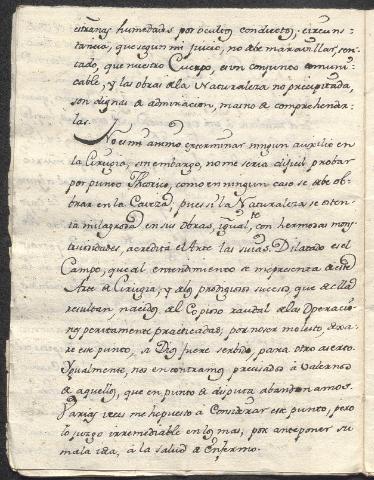 estrañas humedades por ocultos conductos; circuns-
tancia, que segun mi juicio, no debe maravillar, sen-
tado, que nuestro Cuerpo, es un conjunto comuni-
cable, y las obras de la Naturaleza no precipitada,
son dignas de admiracion, mas no de comprehender-
las.
No es mi animo exterminar ningun auxilio en
la Cirugia, sin embargo, no me seria dificil probar
por punto Theorico, como en ningun caso se debe ob-
brar en la Caveza, pues si la Naturaleza se osten-
ta milagrosa en sus obras, igualte con hermosas mons-
truosidades, acredita el Arte las suias. Dilatado es el
Campo, que al entendimiento se me presenta de este
Arte de Cirugia, y de los prodigiosos sucesos, que de ella
resultan, nacidos del Copioso raudal de las Operacio-
nes peritamente practicadas; por no ser molesto dexa-
re este punto, a Dios fuere servido, para otro acerto.
Igualmente, nos encontramos precisados à valernos
de aquellos, que en punto de disputa abandonamos.
Varias veces me he puesto a Considerar este punto, pero
lo juzgo irremediable en los mas, por anteponer su
mala idea, à la salud de Enfermo.